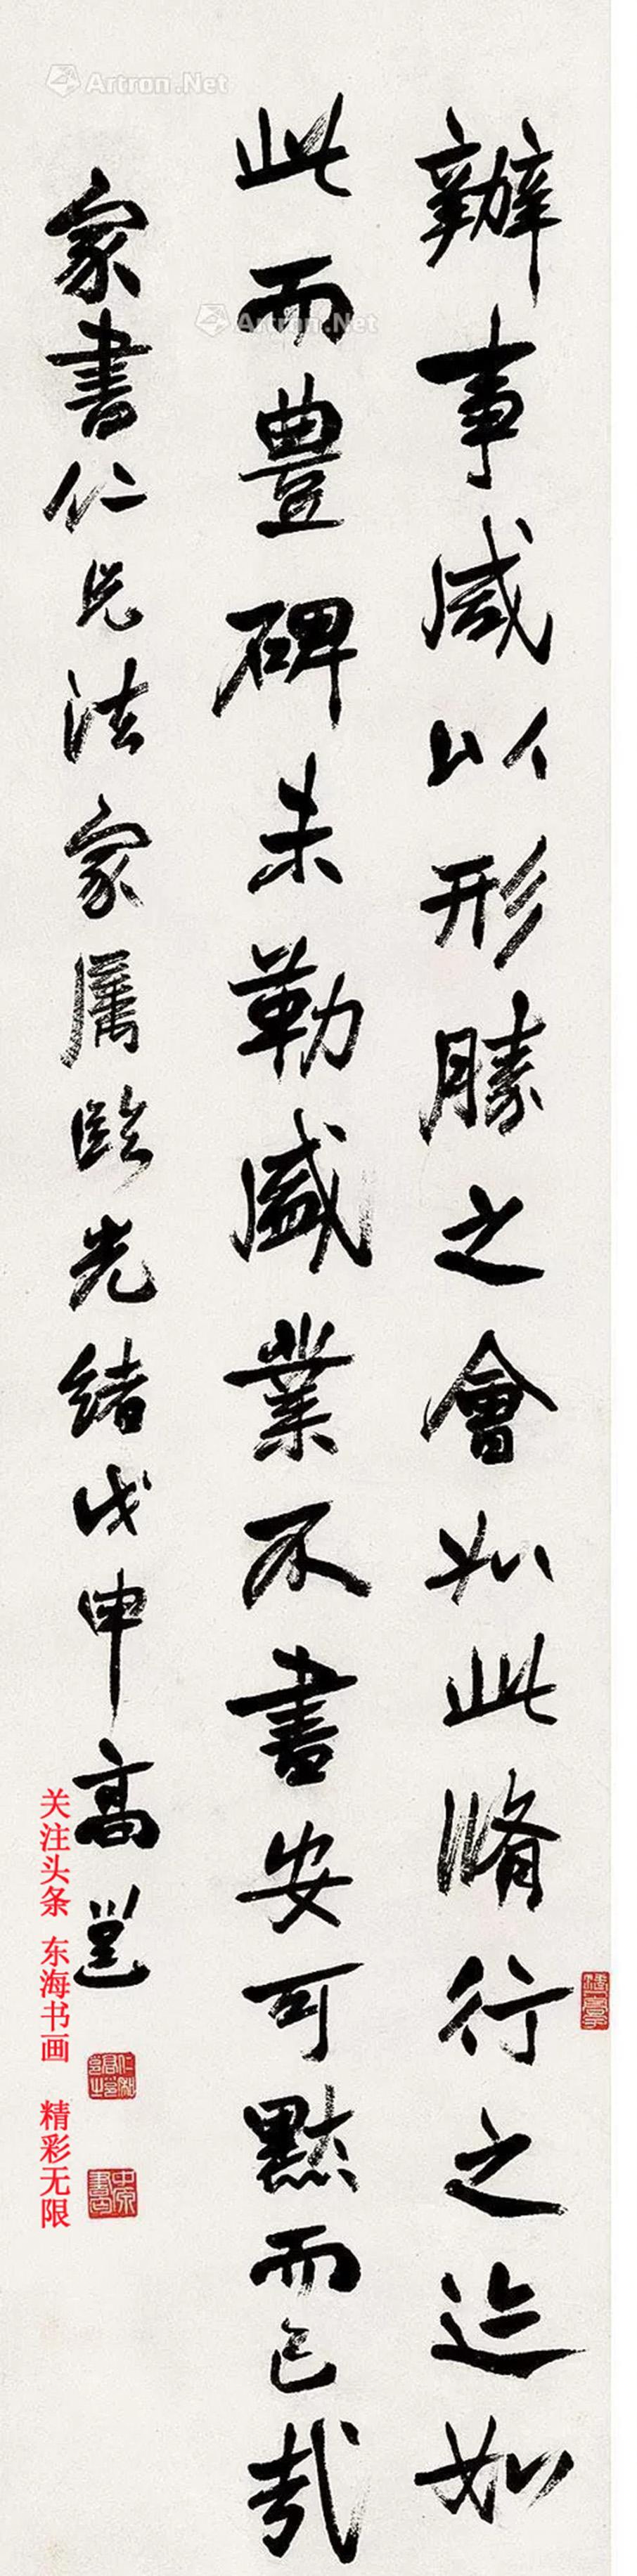 辦事咸以形勝之會如此脩行之迹如
此而豊碑未勒盛業不書安可默而已哉
家書仁兄法家屬臨光緒戊申高邕
关注头条 东海书画 精彩无限
Artron.Net
Artron.Net